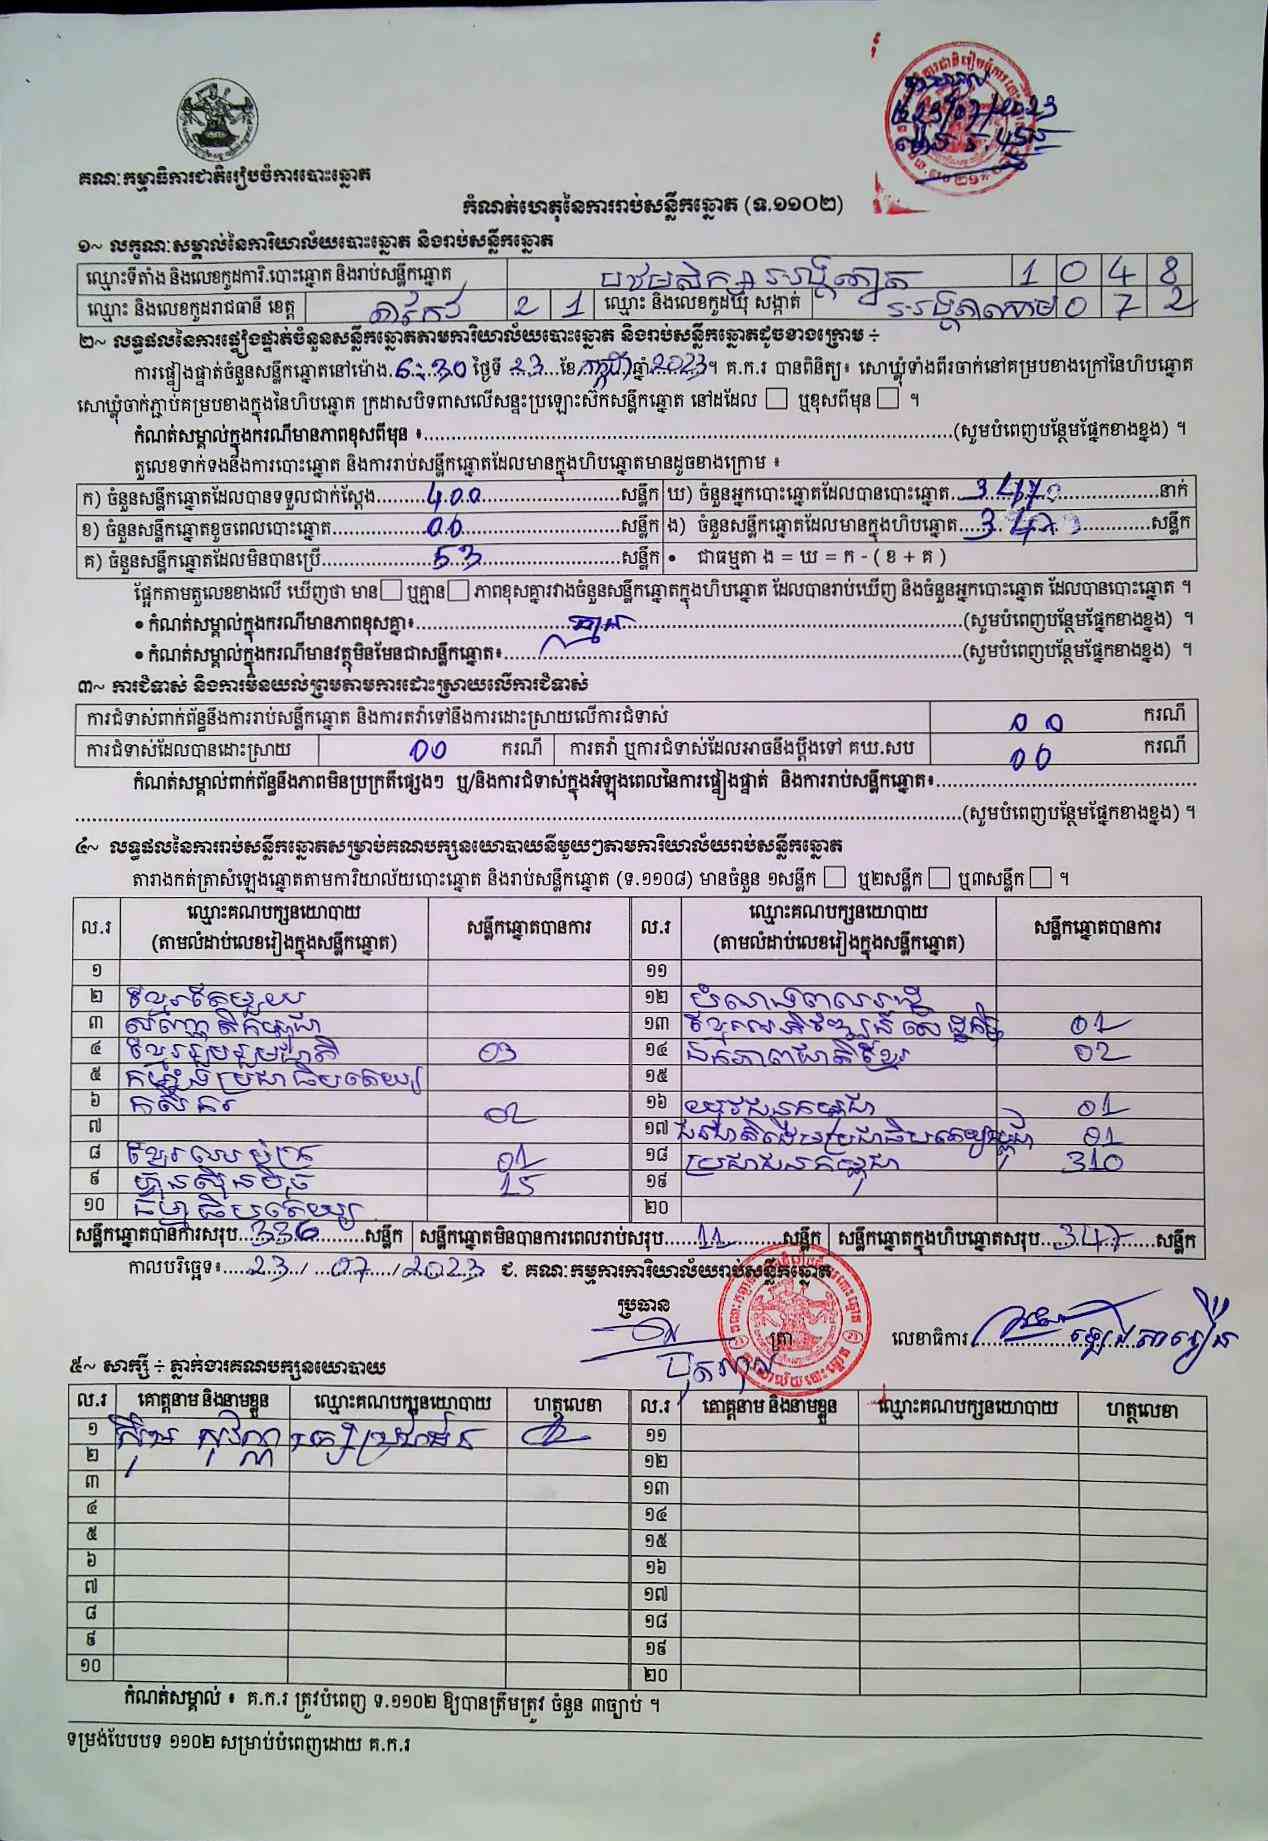 គណៈកម្មាធិការជាតិរៀបចំការបោះឆ្នោត
23/07/2023
កំណត់ហេតុនៃការរាប់សន្លឹកឆ្នោត (ទ.១១០២)
១~ លក្ខណៈសម្គាល់នៃការិយាល័យបោះឆ្នោត និងរាប់សន្លឹកឆ្នោត
ឈ្មោះទីតាំង និងលេខកូដការិ.បោះឆ្នោត និងរាប់សន្លឹកឆ្នោត 1 0 4 8
ឈ្មោះ និងលេខកូដរាជធានី ខេត្ត តាកែវ 2 1 ឈ្មោះ និងលេខកូដឃុំ សង្កាត់ 0 7 2
២~ លទ្ធផលនៃការផ្ទៀងផ្ទាត់ចំនួនសន្លឹកឆ្នោតតាមការិយាល័យបោះឆ្នោត និងរាប់សន្លឹកឆ្នោតដូចខាងក្រោម ÷
ការផ្ទៀងផ្ទាត់ចំនួនសន្លឹកឆ្នោតនៅម៉ោង 6:30 ថ្ងៃទី 23 ខែ កក្កដា ឆ្នាំ 2023 ។ គ.ក.រ បានពិនិត្យ៖ សោឃ្លុំទាំងពីរចាក់នៅគម្របខាងក្រៅនៃហិបឆ្នោត
សោឃ្លុំចាក់ភ្ជាប់គម្របខាងក្នុងនៃហិបឆ្នោត ក្រដាសបិទពាសលើសន្ទះប្រឡោះស៊កសន្លឹកឆ្នោត នៅដដែល ☐ ឬខុសពីមុន ☐ ។
កំណត់សម្គាល់ក្នុងករណីមានភាពខុសពីមុន ៖ (សូមបំពេញបន្ថែមផ្នែកខាងខ្នង) ។
តួលេខទាក់ទងនឹងការបោះឆ្នោត និងការរាប់សន្លឹកឆ្នោតដែលមានក្នុងហិបឆ្នោតមានដូចខាងក្រោម ៖
ក) ចំនួនសន្លឹកឆ្នោតដែលបានទទួលជាក់ស្តែង 400 សន្លឹក ឃ) ចំនួនអ្នកបោះឆ្នោតដែលបានបោះឆ្នោត នាក់
ខ) ចំនួនសន្លឹកឆ្នោតខូចពេលបោះឆ្នោត 00 សន្លឹក ង) ចំនួនសន្លឹកឆ្នោតដែលមានក្នុងហិបឆ្នោត សន្លឹក
គ) ចំនួនសន្លឹកឆ្នោតដែលមិនបានប្រើ 53 សន្លឹក • ជាធម្មតា ង = ឃ = ក - ( ខ + គ )
ផ្អែកតាមតួលេខខាងលើ ឃើញថា មាន ☐ ឬគ្មាន ☐ ភាពខុសគ្នារវាងចំនួនសន្លឹកឆ្នោតក្នុងហិបឆ្នោត ដែលបានរាប់ឃើញ និងចំនួនអ្នកបោះឆ្នោត ដែលបានបោះឆ្នោត ។
• កំណត់សម្គាល់ក្នុងករណីមានភាពខុសគ្នា៖ គ្មាន (សូមបំពេញបន្ថែមផ្នែកខាងខ្នង) ។
• កំណត់សម្គាល់ក្នុងករណីមានវត្ថុមិនមែនជាសន្លឹកឆ្នោត៖ (សូមបំពេញបន្ថែមផ្នែកខាងខ្នង) ។
៣~ ការជំទាស់ និងការមិនយល់ព្រមតាមការដោះស្រាយលើការជំទាស់
ការជំទាស់ពាក់ព័ន្ធនឹងការរាប់សន្លឹកឆ្នោត និងការតវ៉ាទៅនឹងការដោះស្រាយលើការជំទាស់ 00 ករណី
ការជំទាស់ដែលបានដោះស្រាយ 00 ករណី ការតវ៉ា ឬការជំទាស់ដែលអាចនឹងប្តឹងទៅ គឃ.សប 00 ករណី
កំណត់សម្គាល់ពាក់ព័ន្ធនឹងភាពមិនប្រក្រតីផ្សេងៗ ឬ/និងការជំទាស់ក្នុងអំឡុងពេលនៃការផ្ទៀងផ្ទាត់ និងការរាប់សន្លឹកឆ្នោត៖
(សូមបំពេញបន្ថែមផ្នែកខាងខ្នង) ។
៤~ លទ្ធផលនៃការរាប់សន្លឹកឆ្នោតសម្រាប់គណបក្សនយោបាយនីមួយៗតាមការិយាល័យរាប់សន្លឹកឆ្នោត
តារាងកត់ត្រាសំឡេងឆ្នោតតាមការិយាល័យបោះឆ្នោត និងរាប់សន្លឹកឆ្នោត (ទ.១១០៨) មានចំនួន ១សន្លឹក ☐ ឬ២សន្លឹក ☐ ឬ៣សន្លឹក ☐ ។
ល.រ ឈ្មោះគណបក្សនយោបាយ (តាមលំដាប់លេខរៀងក្នុងសន្លឹកឆ្នោត) សន្លឹកឆ្នោតបានការ ល.រ ឈ្មោះគណបក្សនយោបាយ (តាមលំដាប់លេខរៀងក្នុងសន្លឹកឆ្នោត) សន្លឹកឆ្នោតបានការ
១ ១១
២ ខ្មែរតែមួយ ១២
៣ ១៣ 01
៤ ខ្មែររួបរួមជាតិ 03 ១៤ ឯកភាពជាតិខ្មែរ 02
៥ ១៥
៦ កសិករ 02 ១៦ យុវជនកម្ពុជា 01
៧ ១៧ 01
៨ 01 ១៨ ប្រជាជនកម្ពុជា 310
៩ ហ្វ៊ុនស៊ិនប៉ិច 15 ១៩
១០ ធម្មាធិបតេយ្យ ២០
សន្លឹកឆ្នោតបានការសរុប 336 សន្លឹក សន្លឹកឆ្នោតមិនបានការពេលរាប់សរុប 11 សន្លឹក សន្លឹកឆ្នោតក្នុងហិបឆ្នោតសរុប 347 សន្លឹក
កាលបរិច្ឆេទ៖ 23 / 07 / 2023 ជ. គណៈកម្មការការិយាល័យរាប់សន្លឹកឆ្នោត
ប្រធាន ត្រា លេខាធិការ
៥~ សាក្សី ÷ ភ្នាក់ងារគណបក្សនយោបាយ
ល.រ គោត្តនាម និងនាមខ្លួន ឈ្មោះគណបក្សនយោបាយ ហត្ថលេខា ល.រ គោត្តនាម និងនាមខ្លួន ឈ្មោះគណបក្សនយោបាយ ហត្ថលេខា
១ ១១
២ ១២
៣ ១៣
៤ ១៤
៥ ១៥
៦ ១៦
៧ ១៧
៨ ១៨
៩ ១៩
១០ ២០
កំណត់សម្គាល់ ៖ គ.ក.រ ត្រូវបំពេញ ទ.១១០២ ឱ្យបានត្រឹមត្រូវ ចំនួន ៣ច្បាប់ ។
ទម្រង់បែបបទ ១១០២ សម្រាប់បំពេញដោយ គ.ក.រ